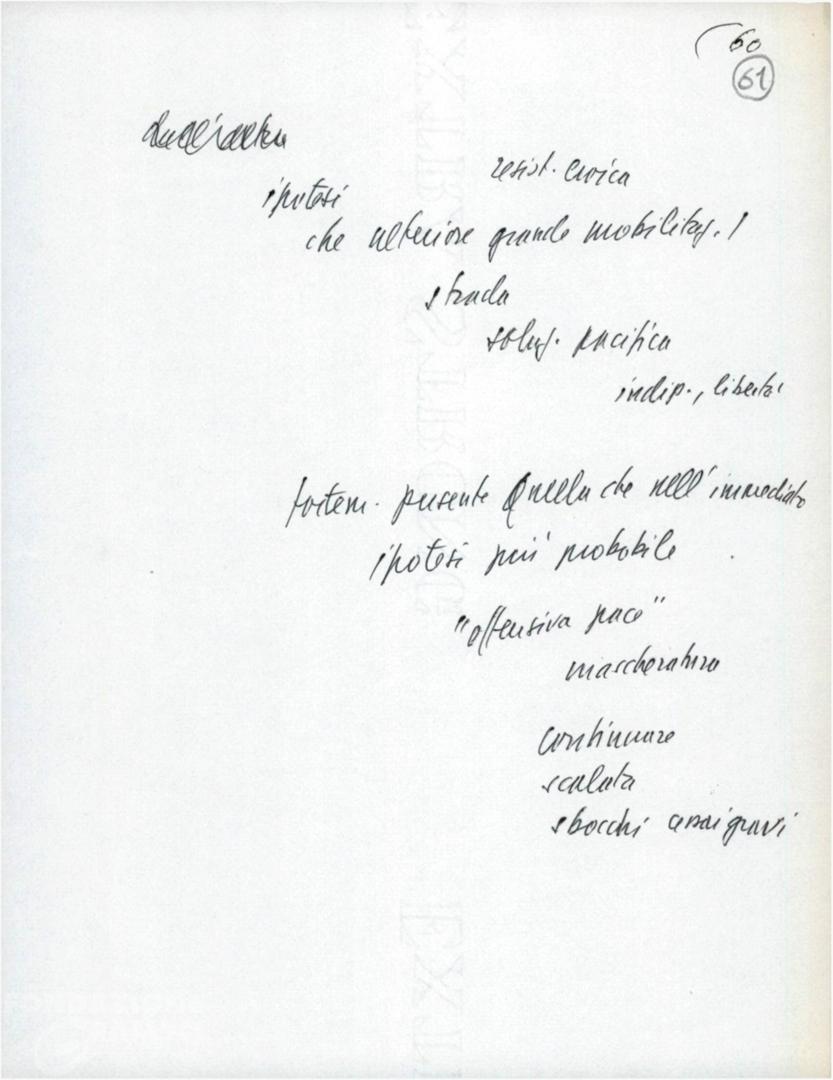 60
61
resist. eroica
ipotesi
che ulteriore grande mobilitaz. /
strada
soluz. pacifica
indip., libertà
fortem. presente Quella che nell'immediato
ipotesi più probabile
"offensiva pace"
mascheratura
continuare
scalata
sbocchi assai gravi